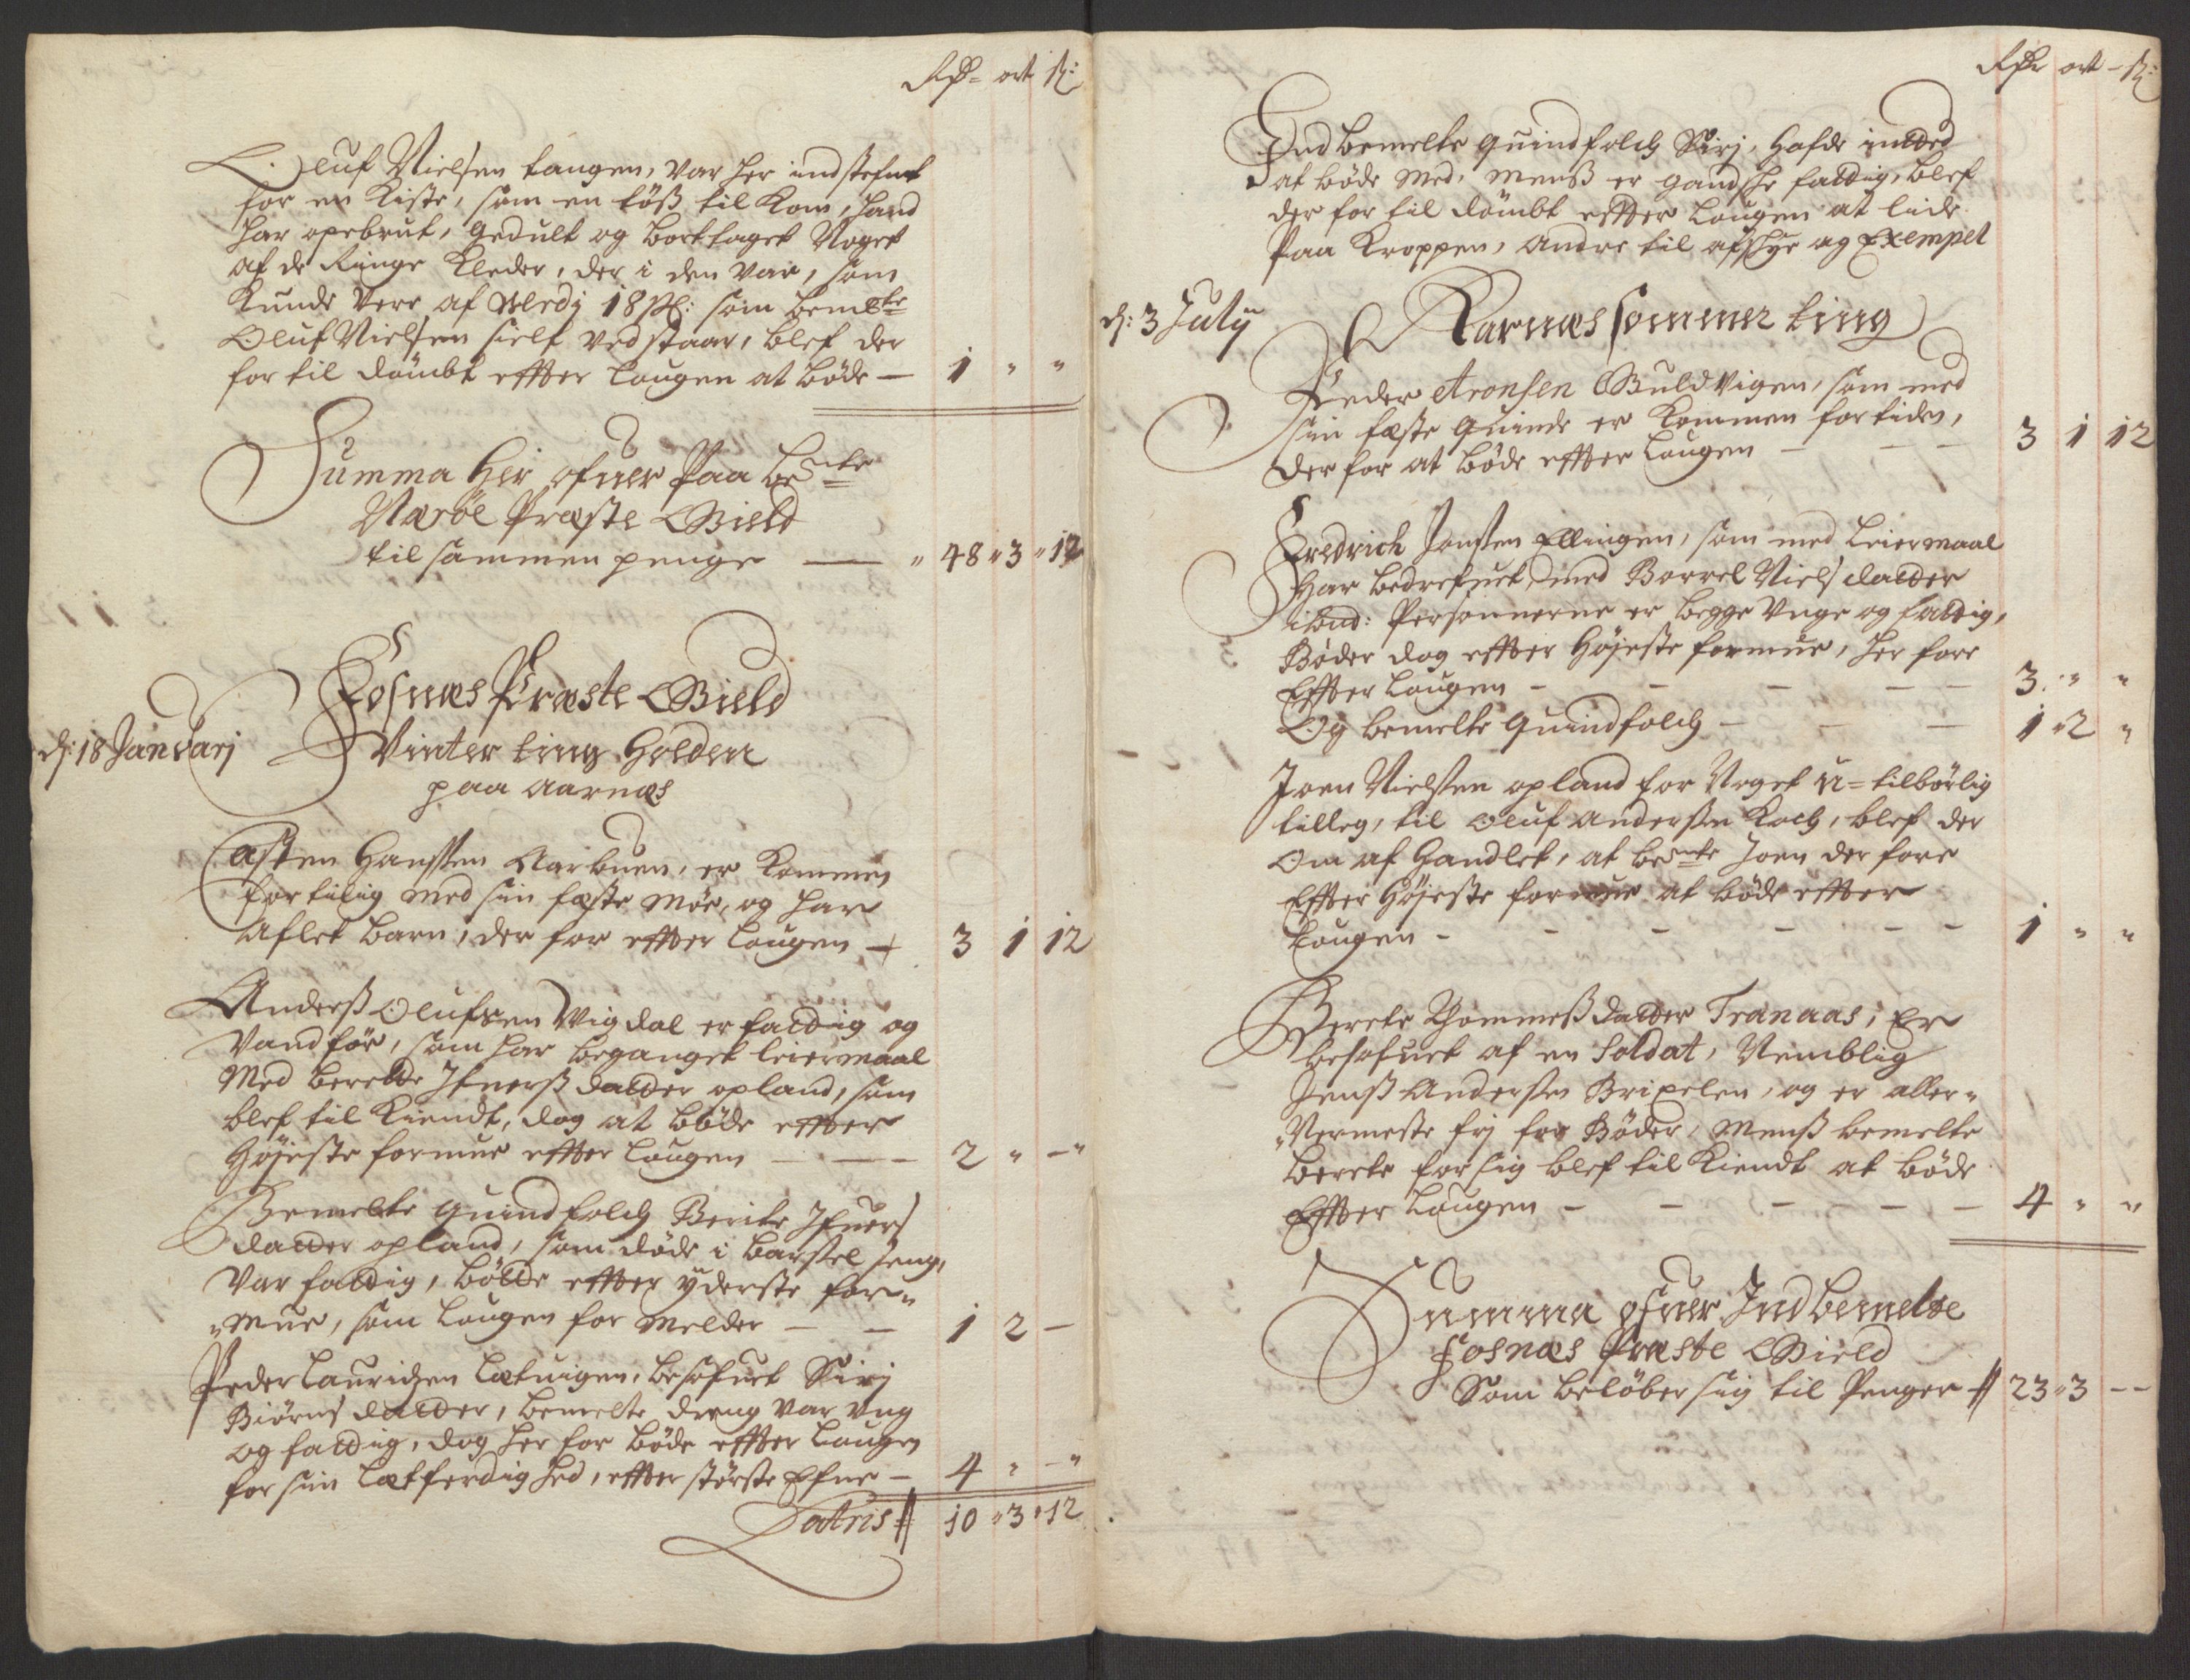 Rdr ort ß:
Oluf Nielsen tangen, var her indstefnet
for en Kiste, som en töß til Kom, hand
har opebrut, gedult og borttaget Noget
af de Ringe Kleder, der i den var, som
Kunde Vere af Verdj 18 ß: som bemte
Oluf Nielsen sielf Vedstaar, blef der
for til dömbt effter Lougen at böde — 1 " "
Summa her ofuer Paa bemte
Nærøe Præste Gield
til sammen penge — " 48 " 3 " 12
Fosnæs Præste Gield
d: 18 Januarj
Vinter ting Holden
paa Aarnæs
Casten Hanssen Aarbuen, er Kommen
for tilig med sin feste Møe, og har
Aflet barn, der for effter Lougen — 3 1 12
Anderß Olufsen Vigdal er fattig og
Vandför, som har beganget leiermaal
Med berette Ifuerß datter opland, som
blef til Kiendt, dog at böde effter
Høieste formue effter Lougen — 2 " — "
Bemelte quindfolch Berite Ifuers
datter opland, som döde i barsel seng,
Var fattig, bötte effter yderste for-
mue, som Lougen for Melder — 1 2 —
Peder Lauridzen Lætuigen, besofuet Sirj
Biörns datter, bemelte dreng var Ung
og fattig, dog her for böde effter Lougen
for sin Letferdighed, effter störste Efne — 4 " — "
Latris 10 " 3 " 12
Rdr ort ß:
Indbemelte quindfolch Sirj, hafde intted
at böde med, menß er gandshe fattig, blef
der for til dömbt effter Lougen at lide
Paa Kroppen, andre til afschye og Exempel
d: 3 Julij
Rarnæs sommer ting
Peder Aronsen Guldvigen, som med
sin feste quinde er Kommen for tiden,
der for at böde effter Lougen — 3 1 12
Fredrich Jonsen Ellingen, som med Leiermaal
Har bedrefuet med Borrel Niels datter
ibnd: Personnerne er begge Unge og fattig,
Böder dog effter Höjeste formue, her fore
Effter Lougen — 3 " "
Og bemelte quindfolch — 1 " 2 "
Joen Nielsen opland for Noget u-tilbörlig
tilleg, til Oluf Andersen Koch, blef der
Om af Handlet, at bemte Joen der fore
Effter Höjeste formue at böde effter
Lougen — 1 " "
Berete Thommeß datter Tranaas, Er
besofuet af en Soldat, Nemblig
Jenß Andersen, og er aller-
Nermeste frj for Böder, Menß bemelte
berete for sig blef til Kiendt at böde
Effter Lougen — 4 " "
Summa ofuer Indbemelte
Fosnæs Præste Gield
Som belöber sig til Penger 23 " 3 — —